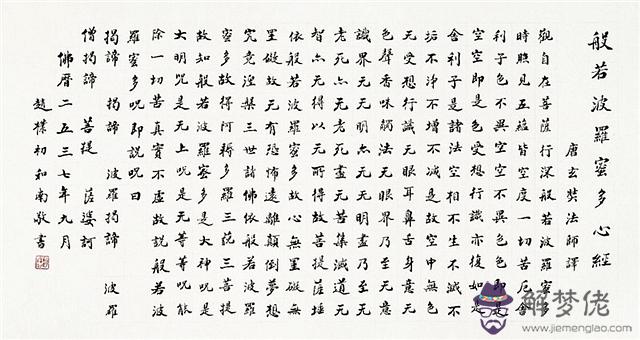 般若波羅蜜多心經
唐玄奘法師譯
觀自在菩薩行深般若波羅蜜多
時照見五蘊皆空度一切苦厄舍
利子色不異空空不異色色即是
空空即是色受想行識亦復如是
舍利子是諸法空相不生不滅不
垢不淨不增不減是故空中无色
无受想行識无眼耳鼻舌身意无
色聲香味觸法无眼界乃至无意
識界无无明亦无无明盡乃至无
老死亦无老死盡无苦集滅道无
智亦无得以无所得故菩提薩埵
依般若波羅蜜多故心无罣礙无
罣礙故无有恐怖遠離顛倒夢想
究竟涅槃三世諸佛依般若波羅
蜜多故得阿耨多羅三藐三菩提
故知般若波羅蜜多是大神咒是
大明咒是无上咒是无等等咒能
除一切苦真實不虛故說般若波
羅蜜多咒即說咒曰
揭諦 揭諦 波羅揭諦 波羅
僧揭諦 菩提 薩婆訶
佛曆二五三七年九月
趙樸初和南敬書
解梦佬
www.jiemenglao.com